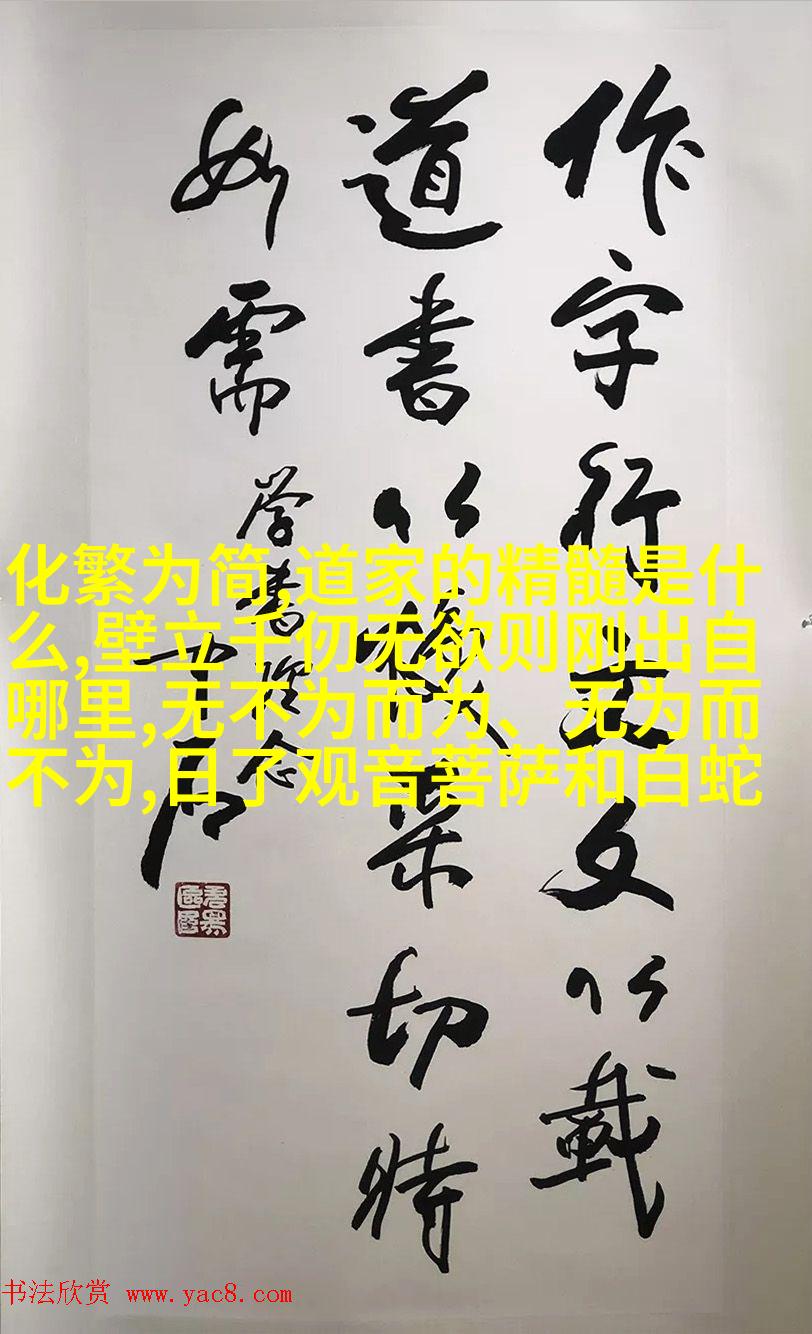 作字行文文以載
道書以煥采切時
如需
学書理念
中石
化繁为简,道家的精髓是什
么,壁立千仞无欲则刚出自
哪里,无不为而为、无为而
不为,日了观音菩萨和白蛇
书法欣赏 www.yac8.com